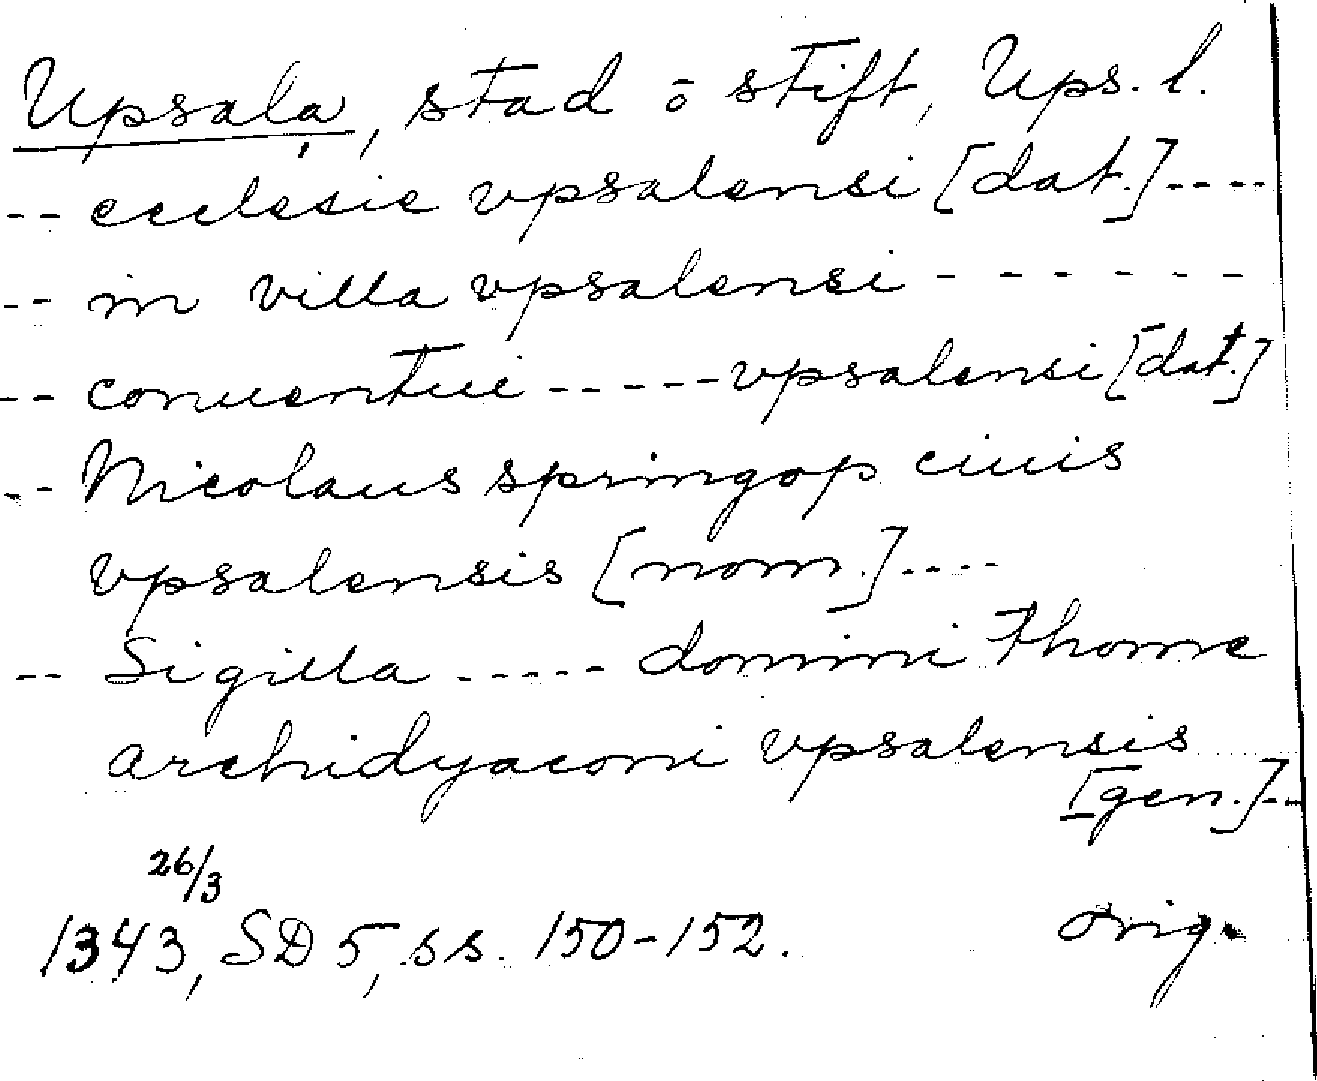 Upsala, stad ō stift, Ups. l.
-- ecclesie vpsalensi [dat.] ----
-- in villa vpsalensi - - - - - - -
-- conuentui ----- vpsalensi [dat.]
-- Nicolaus springop ciuis
vpsalensis [nom.] ----
-- Sigilla ----- domini Thome
archidyaconi vpsalensis
[gen.]--
26/3
1343, SD 5, ss. 150-152. orig.